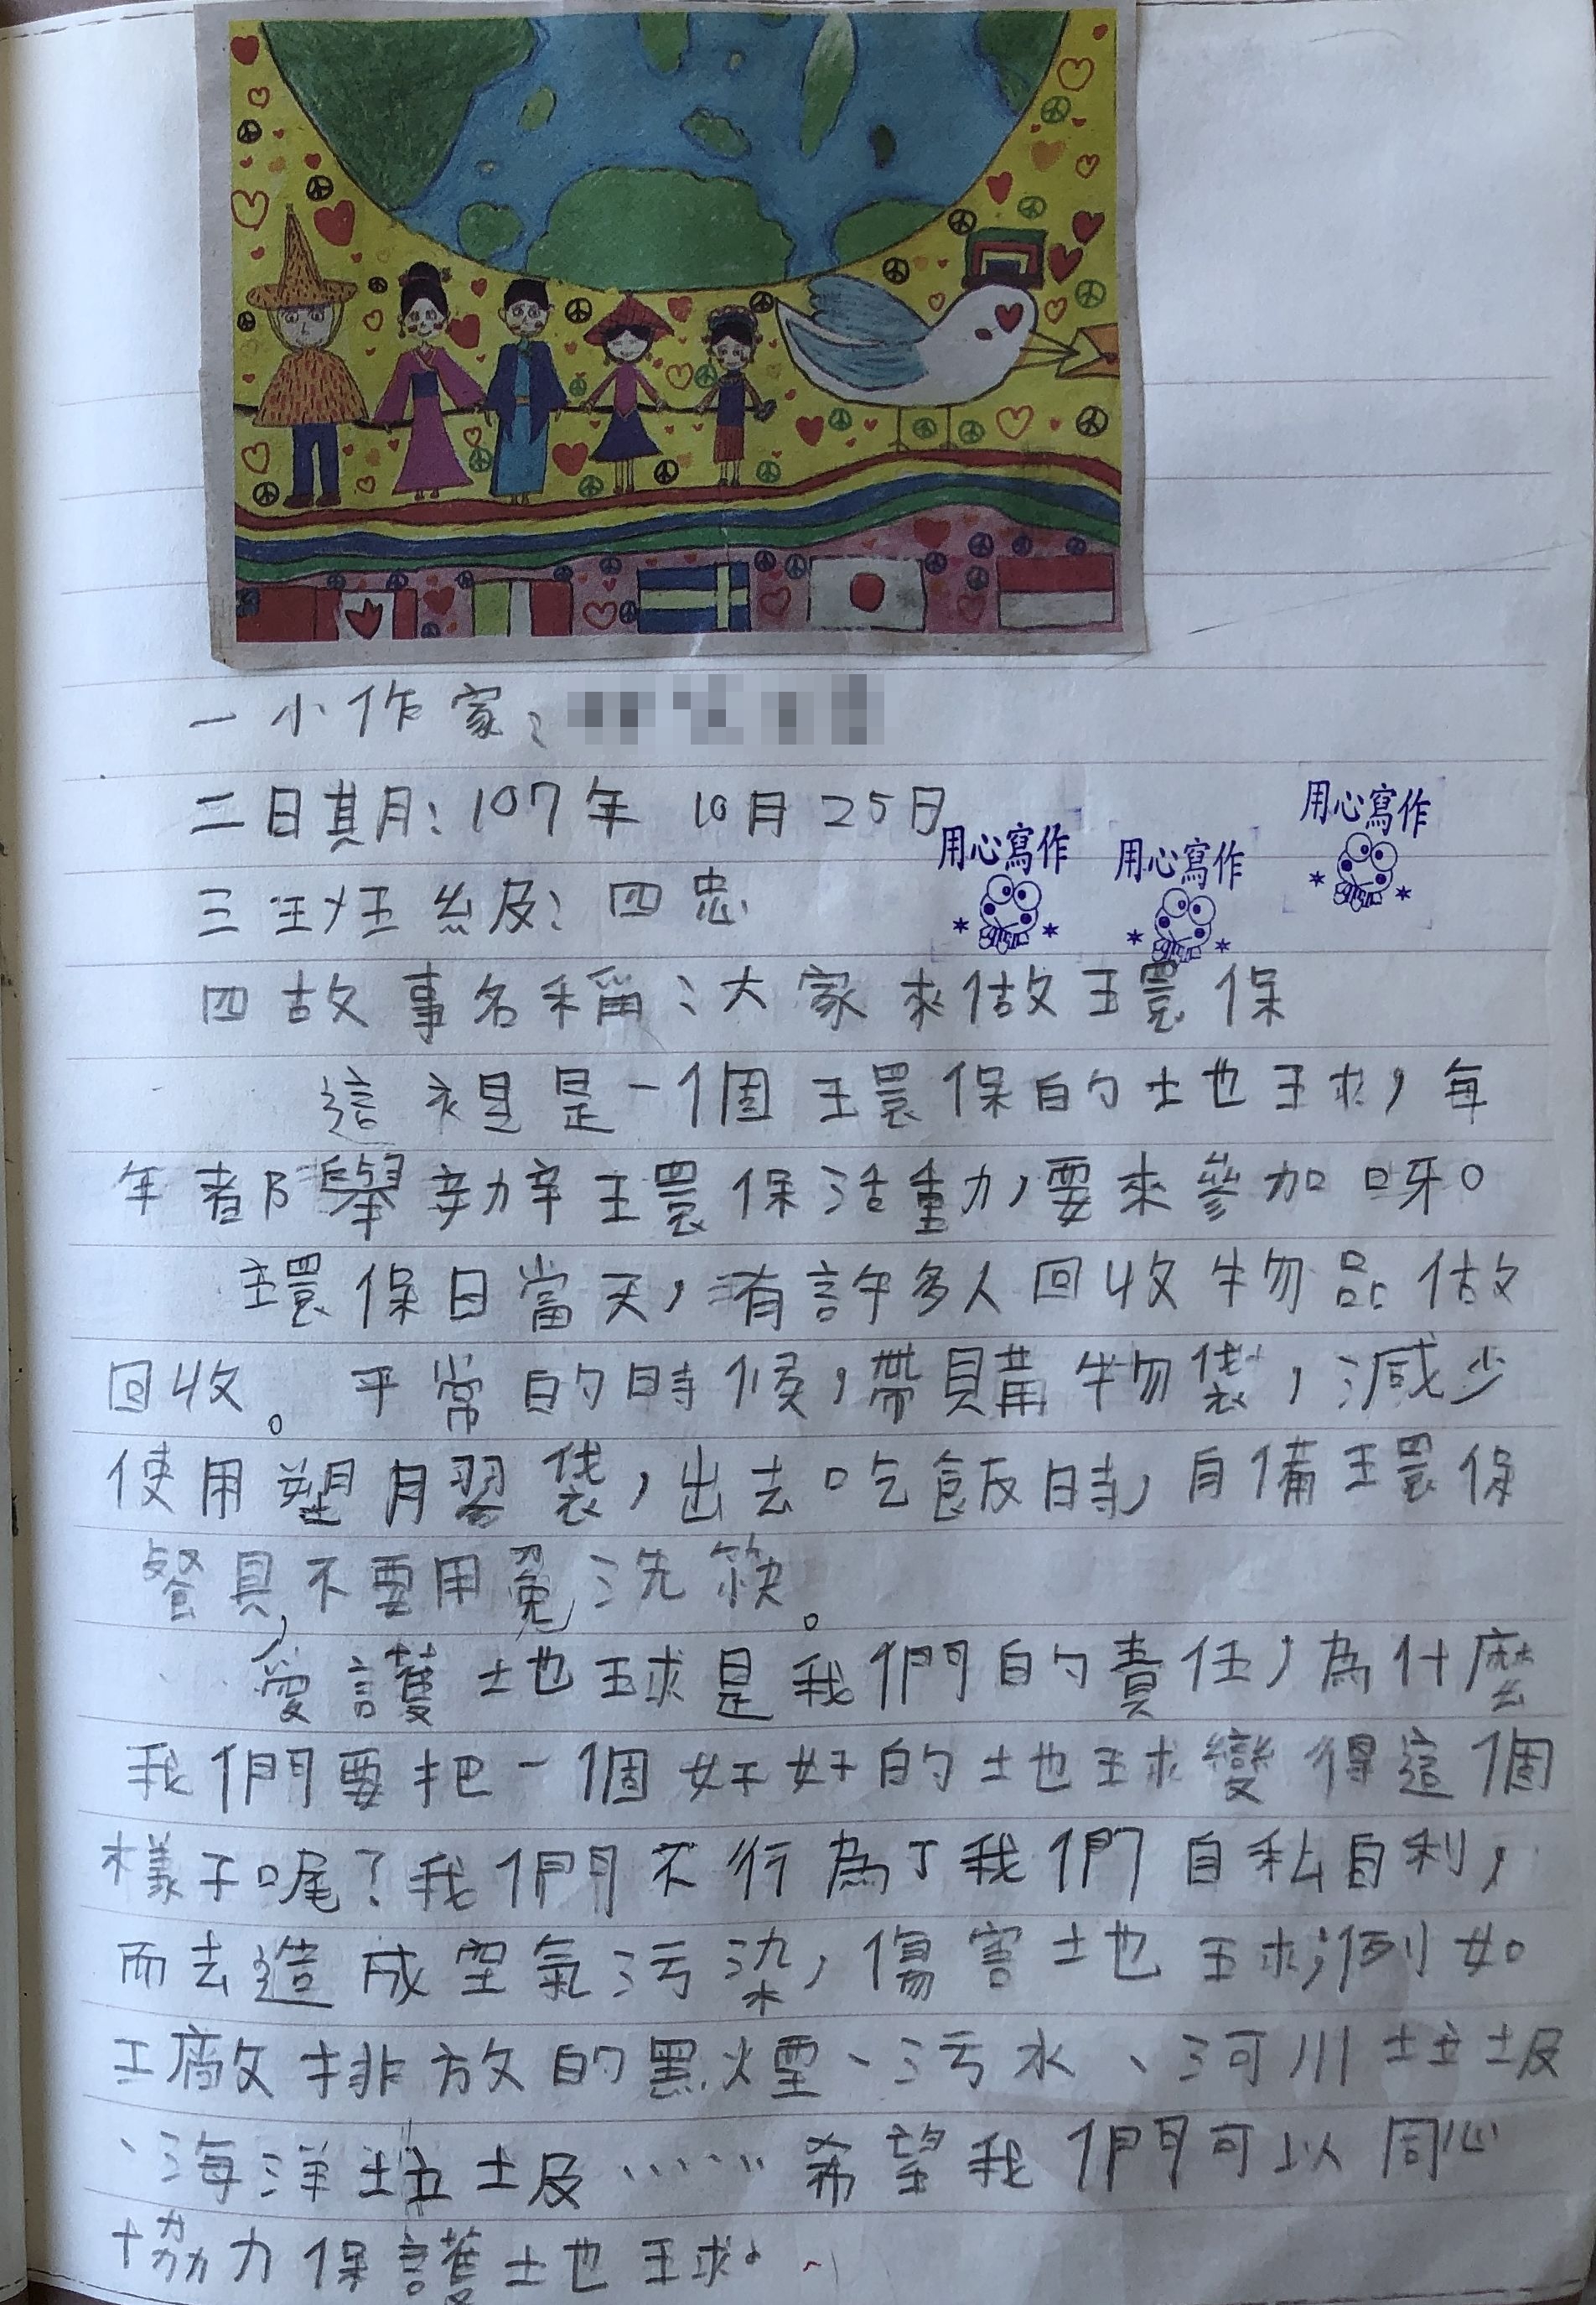 一小作家:
二日期:107年 10月25日
用心寫作
用心寫作
用心寫作
三班級:四忠
四故事名稱:大家來做環保
這裡是一個環保的地球,每
年都舉辦環保活動,要來參加呀。
環保日當天,有許多人回收物品做
回收。平常的時候,帶購物袋,減少
使用塑膠袋,出去吃飯時,自備環保
餐具,不要用免洗筷。
愛護地球是我們的責任,為什麼
我們要把一個好好的地球變得這個
樣子呢?我們不行為了我們自私自利,
而去造成空氣污染,傷害地球,例如
工廠排放的黑煙、污水、河川垃圾
、海洋垃圾……希望我們可以同心
協力保護地球。